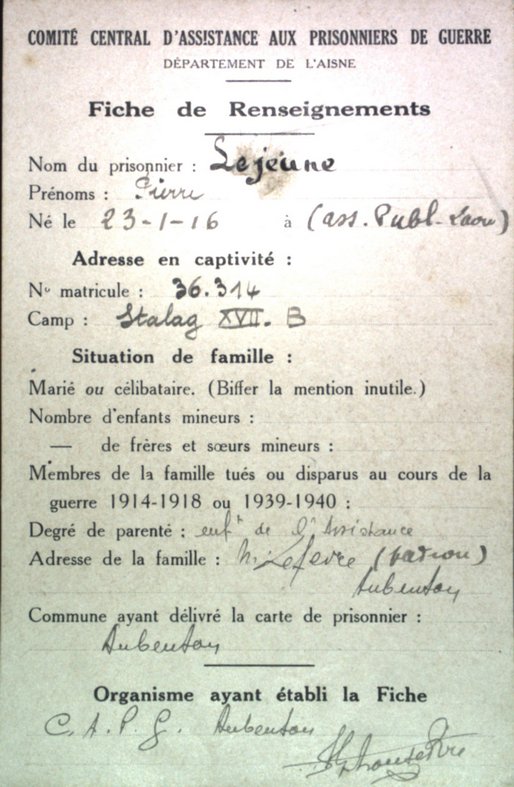 COMITÉ CENTRAL D'ASSISTANCE AUX PRISONNIERS DE GUERRE
DÉPARTEMENT DE L'AISNE
Fiche de Renseignements
Nom du prisonnier : Lejeune
Prénoms : Pierre
Né le 23-1-16 à (ass. Publ. Laon)
Adresse en captivité :
No matricule : 36.314
Camp : Stalag XVII. B
Situation de famille :
Marié ou célibataire. (Biffer la mention inutile.)
Nombre d'enfants mineurs :
— de frères et sœurs mineurs :
Membres de la famille tués ou disparus au cours de la
guerre 1914-1918 ou 1939-1940 :
Degré de parenté : enft de l'Assistance
Adresse de la famille : Mr Lefevre (patron)
Aubenton
Commune ayant délivré la carte de prisonnier :
Aubenton
Organisme ayant établi la Fiche
C. A. P. G. Aubenton